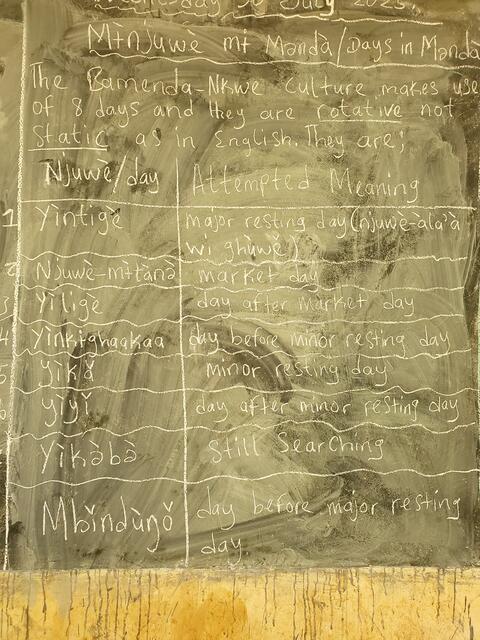 Wednesday 30 July 2025
Mɨnjuwè mɨ Məndà/Days in Məndà
The Bamenda-Nkwe culture makes use
of 8 days and they are rotative not
static as in English. They are;
Njuwè/day Attempted Meaning
1 Yìntigè major resting day (njuwè-àla'à
wi ghùwè)
2 Njuwè-mɨtànə̀ market day
3 Yìligè day after market day
4 Yìnkɨghaakaa day before minor resting day
5 Yikǎ minor resting day
6 Yiyǐ day after minor resting day
Yìkàbà Still Searching
Mbǐndùŋǒ day before major resting
day